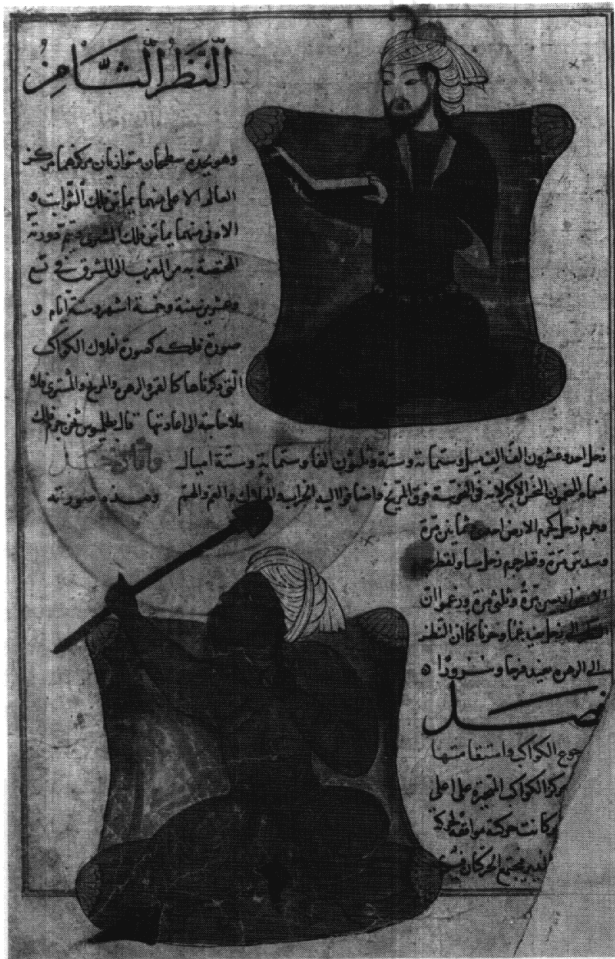 النظر الثامن
وهو يحده سطحان متوازيان مركزهما مركز
العالم الاعلى منهما يماس فلك الثوابت و
الادنى منهما يماس فلك المشتري ويتم دورته
المختصة به من المغرب الى المشرق في تسع
وعشرين سنة وخمسة اشهر وستة ايام و
صورة فلكه كصورة افلاك الكواكب
التي ذكرناها كالقمر والزهرة والمريخ والمشتري فلا
حاجة الى اعادتها قال بطليموس ثخن جرم فلك
زحل احد وعشرون الف الف ميل وستمائة وستة وثلثون الفا وستمائة وستة اميال واما زحل
فسماه المنجمون النحس الاكبر لانه في النحوسة فوق المريخ واضافوا اليه الخراب والهلاك والغم والهم وهذه صورته
وجرم زحل كجرم الارض احد وثمانين مرة
وسدس مرة وقطر جرم زحل يساوي لقطر
الارض مرة وثلثى مرة وزعموا ان
النظر الى زحل يفيد غما وحزنا كما ان النظر
الى الزهرة يفيد فرحا وسرورا
فصل
جوع الكواكب واستقامتها
مركز الكواكب المتحيرة على اعلى
وكانت حركته موافقة لحركة
الحركتان فيرى